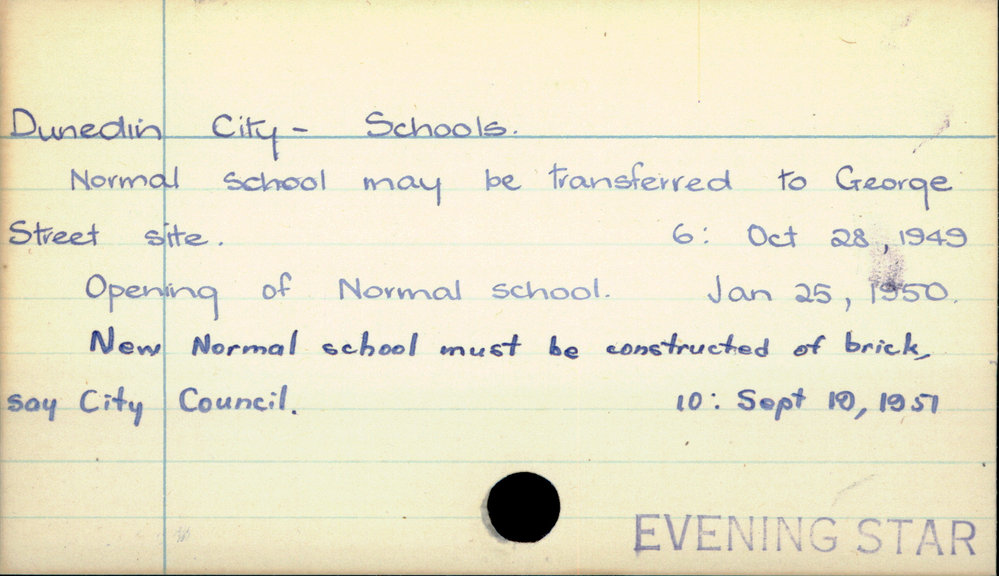 Dunedin City - Schools.
Normal school may be transferred to George
Street site. 6: Oct 28, 1949
Opening of Normal school. Jan 25, 1950.
New Normal school must be constructed of brick,
say City Council. 10: Sept 19, 1951
EVENING STAR